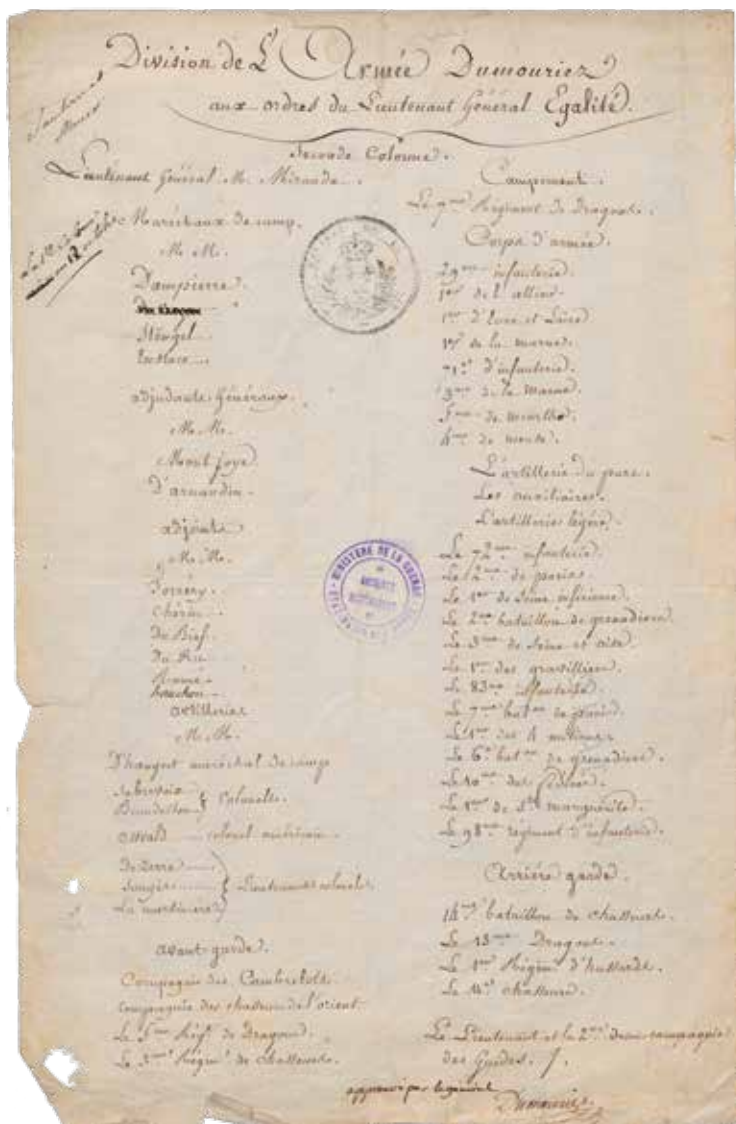 Division de L'Armée Dumouriez
aux ordres du Lieutenant Général Egalité.
Seconde Colonne.
Lieutenant Général M. Miranda.
Maréchaux de camp.
M. M.
Dampierre
Sténgel
adjudants Généraux.
M. M.
Montjoye
D'arnaudin
adjoints
M. M.
Torrény
Chérin
Du Bief
Du Ru
artillerie
M. M.
D'hangest maréchal de camp
Colonels.
colonel américain.
Lieutenants colonels
La martiniere
avant-garde.
Compagnie des Cambrelots.
Compagnie des chasseurs de l'orient.
Le 5me Régt de Dragons.
Le 3me Régimt de chasseurs.
Campement.
Le 7me Régiment de Dragons.
Corps d'armée.
29me infanterie.
1er de l'allier.
1er d'Eure et Loire
1er de la marne.
71e d'infanterie.
3me de la Marne.
5me de meurthe.
4me de meuse.
L'artillerie du parc.
Les auxiliaires.
L'artillerie légère.
Le 72me infanterie.
Le 2me de paris.
Le 1er de Seine inférieure.
Le 2me bataillon de grenadiers.
Le 3me de Seine et oise.
Le 1er des gravilliers.
Le 83me infanterie.
Le 7me baton de paris.
Le 1er des 4 nations.
Le 6e baton de grenadiers.
Le 10me des fédérés.
Le 1er de Ste marguérite.
Le 98me régiment d'infanterie.
Arrière garde.
14me bataillon de chasseurs.
Le 13me Dragons.
Le 1er Régimt d'hussards.
Le chasseurs.
Le Lieutenant et la 2me demi compagnie
des Guides.
approuvé par le général
Dumouriez
MINISTERE DE LA GUERRE